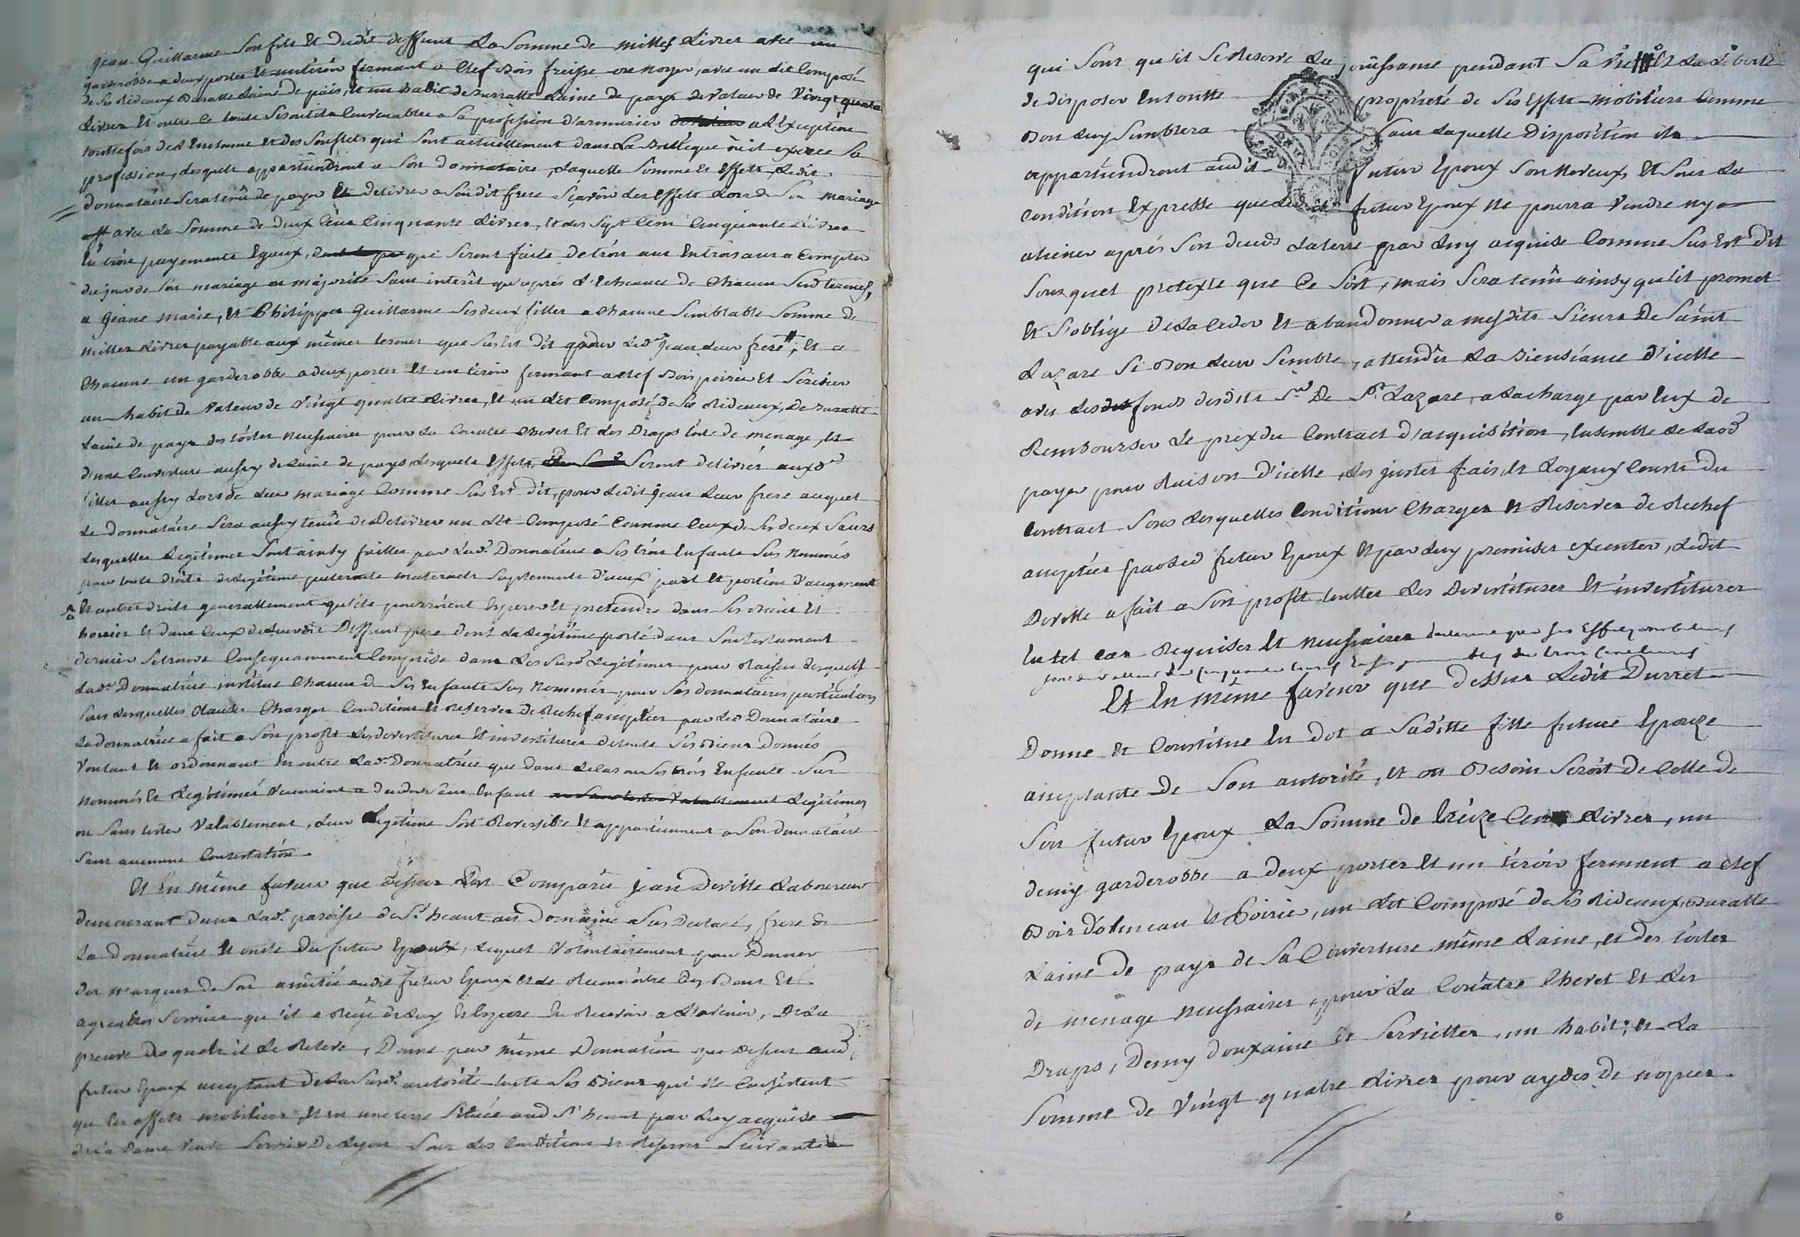 jean Guillarme son fils et dudit deffunt la somme de milles livres avec un
garderobbe a deux portes et un tiroir fermant a clef bois freisne ou noyer, avec un lit composé
de ses rideaux buratte laine de païs, et un habit de burratte laine de pays de valeur de vingt quatre
livres et outre ce touts ses outils convenables a sa profession d'armurier a l'exception
touttefois de l'enclume et des souflets qui sont actuellement dans la boutique où il exerce sa
profession, lesquels appartiendront a son donnataire, laquelle somme et effets, ledit
donnataire sera tenû de payer et delivrer a sondit frere sçavoir les effets lors de son mariage
avec la somme de deux cens cinquante livres, et les sept cens cinquante livres
en trois payements egaux, qui seront faits de trois ans en trois ans a compter
du jour de son mariage ou majorité sans interêt qu'après l'echeance de chacun susd. termes,
a jeane marie, et Philippes Guillarme ses deux filles a chacune semblable somme de
milles livres payable aux mêmes termes que sus est dit pour led. jean leur frere, et a
chacune un garderobbe a deux portes et un tiroir fermant a clef bois poirier et serisier
un habit de valeur de vingt quatre livres, et un lit composé de ses rideaux, de buratte
laine de pays des toiles necessaires pour la couatre chevet et les draps toile de menage, et
d'une couverture aussy de laine de pays, lesquels effets seront delivrés auxd.
filles aussy lors de leur mariage comme sus est dit, pour ledit jean leur frere auquel
le donnataire sera aussy tenû de delivrer un lit composé comme ceux de ses deux sœurs
lesquelles legitimes sont ainsy faittes par lad. Donnatrice a ses trois enfants sus nommés
pour touts droits de legitime paternels maternels suplements d'iceux part et portion d'augment
et autres droits generallement qu'ils pourroient esperer et pretendre dans ses biens et
hoirie et dans ceux de deffunt pere dont la legitime porté dans son testament
dernier se trouve consequamment comprise dans les susd. legitimes pour raison desquels
lad. Donnatrice institue chacun de ses enfants sus nommés pour ses donnataires particuliers
sous lesquelles clauses charges conditions et reserves de rechef acceptées par led. Donnataire
la donnatrice a fait a son profit les devestitures et investitures de touts ses biens donnés
voulant et ordonnant en outre lad. Donnatrice que dans le cas ou ses trois enfants sus
nommés et legitimés vinssent a deceder sans enfant
ou sans tester valablement, leur legitime soit reversible et appartiennent a son donnataire
sans aucunne contestation.
Et en même faveur que dessus est comparû jean Deville laboureur
demeurant dans lad. paroisse de St. heant au Domaine a sus declaré, frere de
la donnatrice et oncle du futur epoux, lequel volontairement pour donner
des marques de son amitié audit futur epoux et de reconnoitre les bons et
agreables services qu'il a reçû de luy et espere en recevoir a l'avenir, de la
preuve desquels il le releve, Donne par même Donnation que dessus aud.
futur epoux acceptant de la susd. autorité touts ses biens qui ne consistent
qu'en effets mobiliers et en une terre située aud. St. heant par luy acquise
de la Dame veuve de Lyon sous les conditions et reserves suivantes

qui sont qu'il se reserve la joüissance pendant sa vie et la liberté
de disposer en toutte propriété de ses effets mobiliers comme
bon luy semblera sans laquelle disposition ils
appartiendront audit futur epoux son neveux, et sous la
condition expresse que ledit futur epoux ne pourra vendre ny
aliener après son deceds la terre par luy acquise comme sus est dit
sous quel pretexte que ce soit, mais sera tenû ainsy qu'il promet
et s'oblige de la ceder et abandonner a mesdits sieurs de saint
lazare si bon leur semble, attendû la bienséance d'icelle
avec les fonds desdits srs. De St. Lazare, a la charge par eux de
rembourser le prix du contract d'acquisition, ensemble le laod
payer pour raison d'icelle, les justes frais, et loyaux couts du
contract sous lesquelles conditions charges et reserves de rechef
acceptées par led. futur epoux et par luy promises executer, ledit
Deville a fait a son profit touttes les devestitures et investitures
en tel cas requises et necessaires declarant que ses effets mobiliers
Et en même faveur que dessus ledit Durret
Donne et constitue en dot a saditte fille future epouze
acceptante de son autorité, et ou besoin seroit de celle de
son futur epoux la somme de treize cens livres, un
demy garderobbe a deux portes et un tiroir fermant a clef
bois d'olmeau et poirier, un lit composé de ses rideaux buratte
laine de pays de sa couverture même laine, et des toiles
de menage necessaires pour la couatre chevet et les
draps, demy douxaine de serviettes, un habit, et la
somme de vingt quatre livres pour aydes de nopces